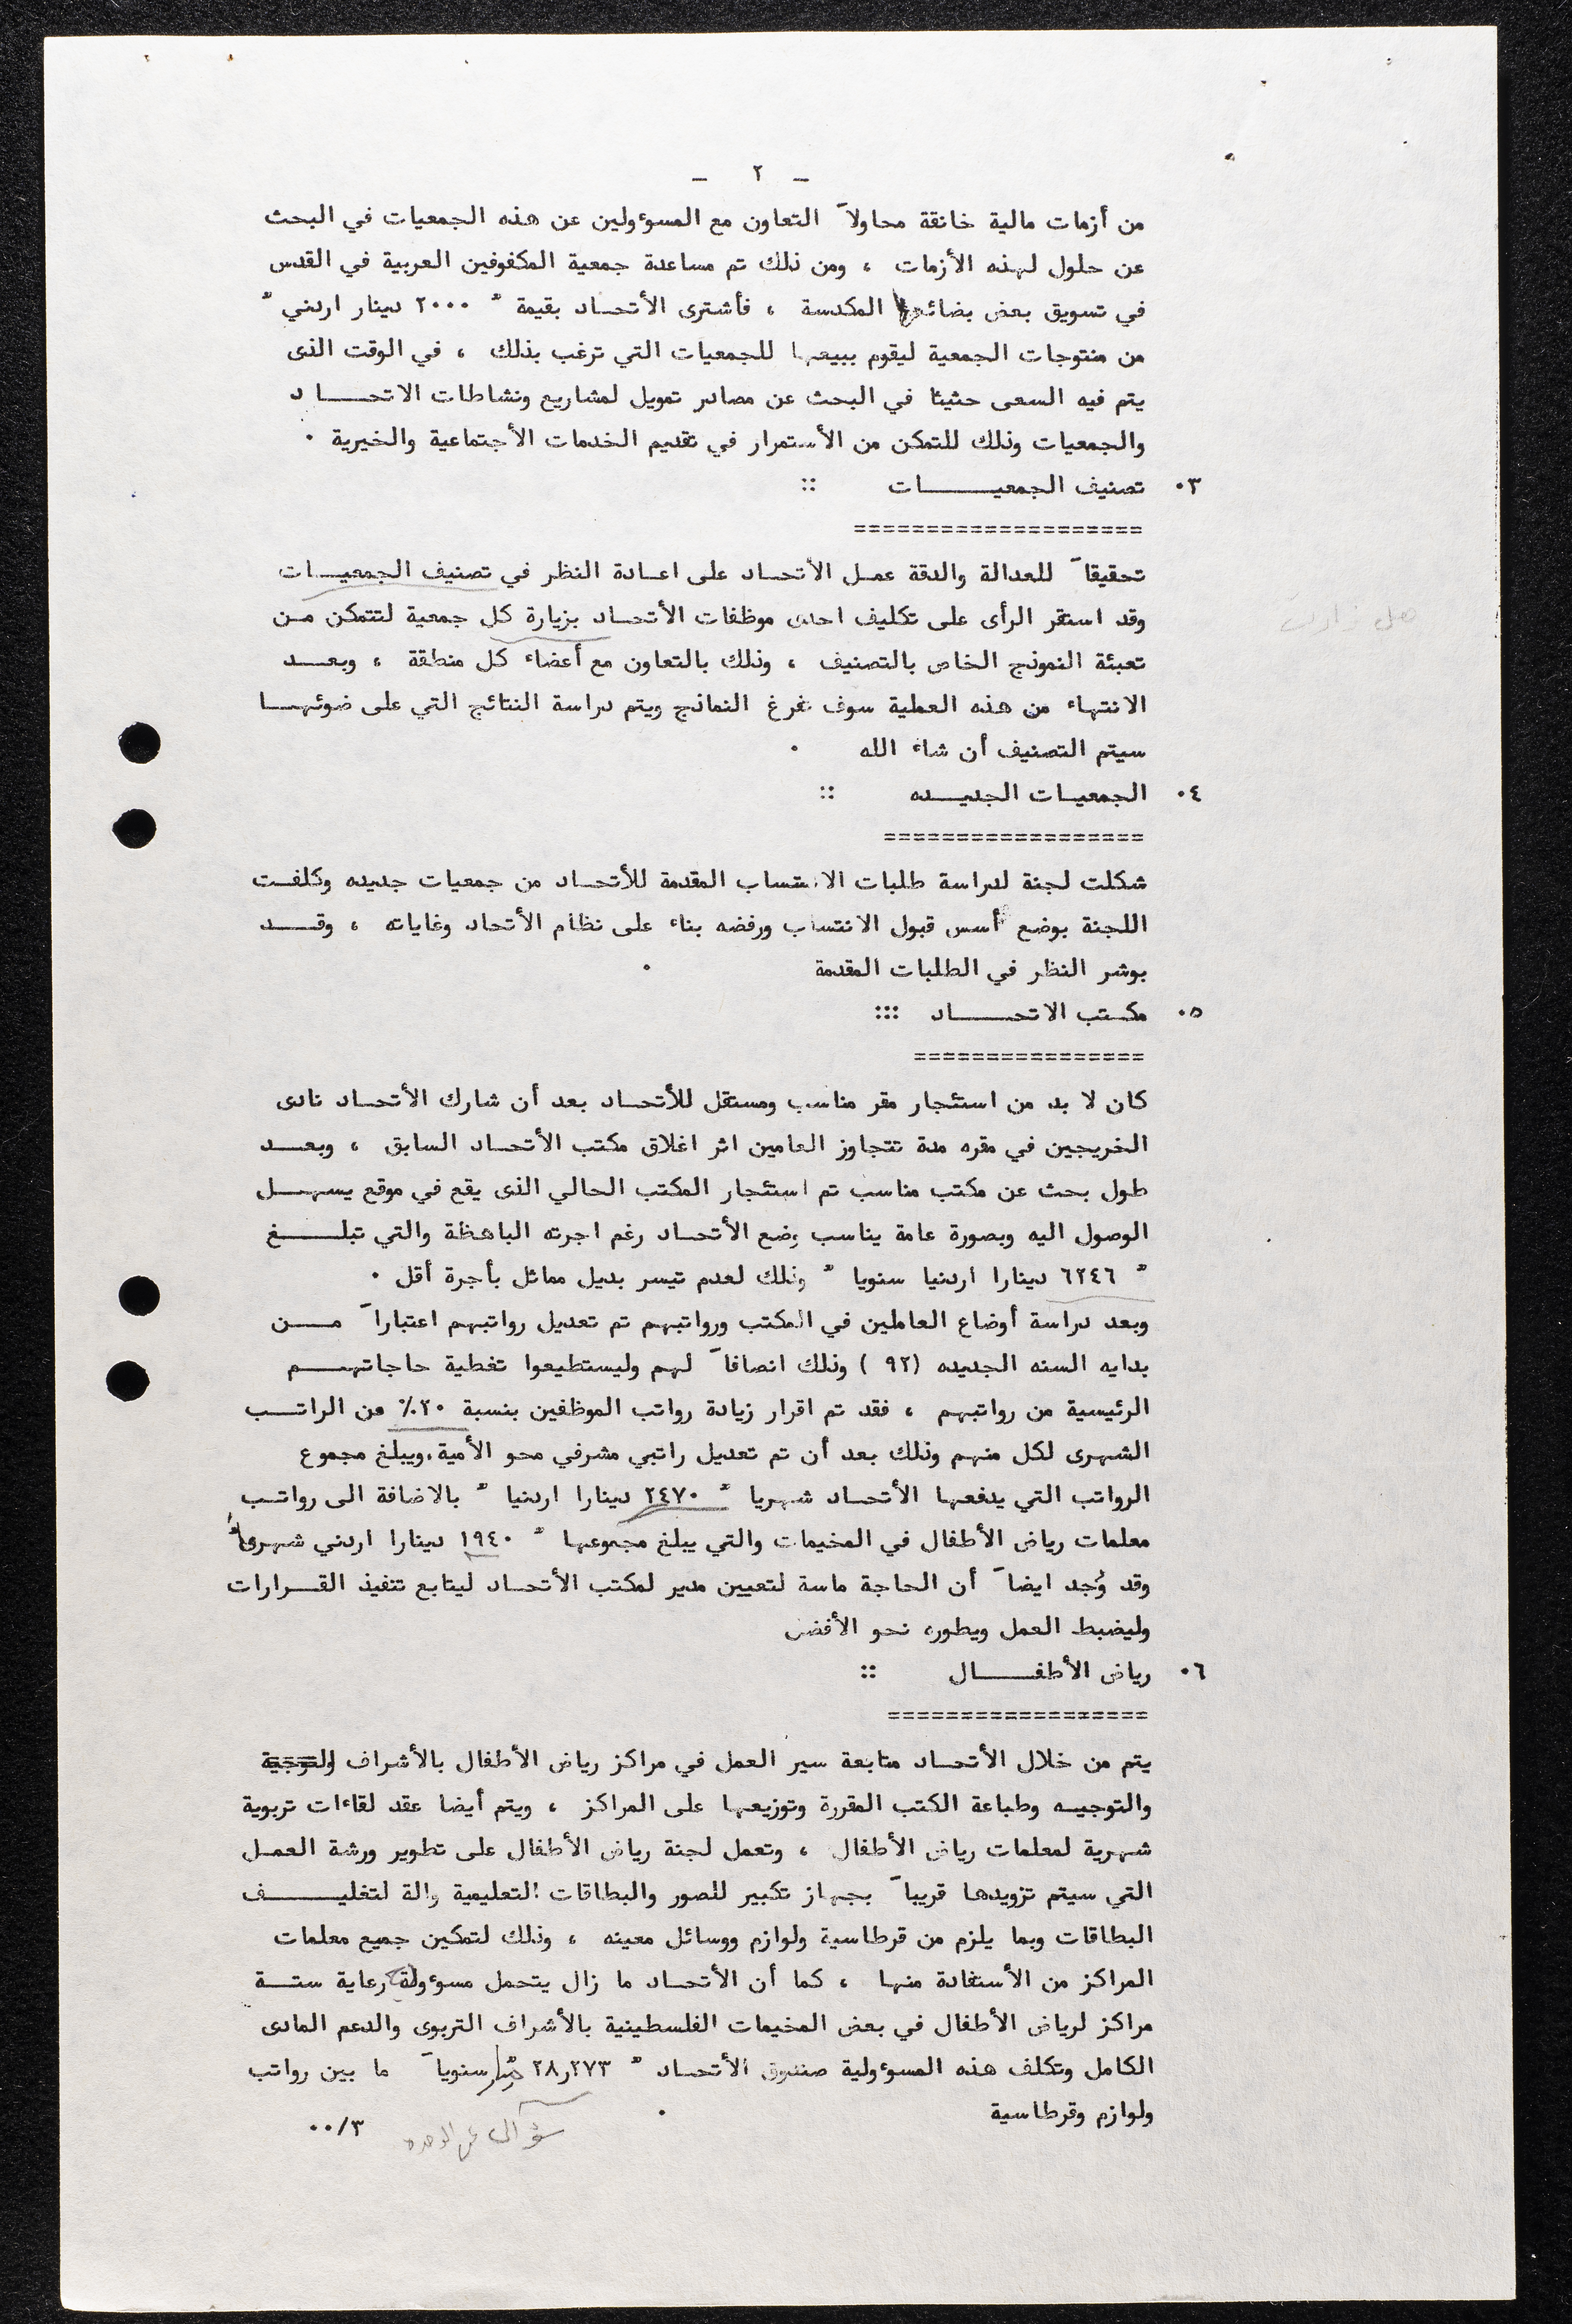 - ٢ -
من أزمات مالية خانقة محاولاً التعاون مع المسوءولين عن هذه الجمعيات في البحث
عن حلول لهذه الأزمات ، ومن ذلك تم مساعدة جمعية المكفوفين العربية في القدس
في تسويق بعض بضائعها المكدسة ، فأشترى الأتحاد بقيمة " ٢٠٠٠ دينار اردني "
من منتوجات الجمعية ليقوم ببيعها للجمعيات التي ترغب بذلك ، في الوقت الذى
يتم فيه السعى حثيثا في البحث عن مصادر تمويل لمشاريع ونشاطات الاتحــــاد
والجمعيات وذلك للتمكن من الأستمرار في تقديم الخدمات الأجتماعية والخيرية ٠
٠٣ تصنيف الجمعيـــــــات ::
====================
تحقيقاً للعدالة والدقة عمل الأتحاد على اعادة النظر في تصنيف الجمعيــات
وقد استقر الرأى على تكليف احدى موظفات الأتحاد بزيارة كل جمعية لتتمكن مـن
هل زارت
تعبئة النموذج الخاص بالتصنيف ، وذلك بالتعاون مع أعضاء كل منطقة ، وبعــد
الانتهاء من هذه العملية سوف تفرغ النماذج ويتم دراسة النتائج التي على ضوئهــا
سيتم التصنيف أن شاء الله ٠
٠٤ الجمعيـات الجديـــده ::
==================
شكلت لجنة لدراسة طلبات الانتساب المقدمة للأتحاد من جمعيات جديده وكلفـت
اللجنة بوضع أسس قبول الانتساب ورفضه بناء على نظام الأتحاد وغاياته ، وقــد
بوشر النظر في الطلبات المقدمة ٠
٠٥ مكـتب الاتحــــــاد :::
================
كان لا بد من استئجار مقر مناسب ومستقل للأتحاد بعد أن شارك الأتحاد نادى
الخريجين في مقره مدة تتجاوز العامين اثر اغلاق مكتب الأتحاد السابق ، وبعــد
طول بحث عن مكتب مناسب تم استئجار المكتب الحالي الذى يقع في موقع يسهــل
الوصول اليه وبصورة عامة يناسب وضع الأتحاد رغم اجرته الباهظة والتي تبلــــغ
" ٦٢٤٦ دينارا اردنيا سنويا " وذلك لعدم تيسر بديل مماثل بأجرة أقل ٠
وبعد دراسة أوضاع العاملين في المكتب ورواتبهم تم تعديل رواتبهم اعتباراً مــــن
بدايه السنه الجديده (٩٢ ) وذلك انصافاً لهم وليستطيعوا تغطية حاجاتهـــم
الرئيسية من رواتبهم ، فقد تم اقرار زيادة رواتب الموظفين بنسبة ٢٠٪ من الراتــب
الشهرى لكل منهم وذلك بعد أن تم تعديل راتبي مشرفي محو الأمية.ويبلغ مجموع
الرواتب التي يدفعها الأتحاد شهريا " ٢٤٧٠ دينارا اردنيا " بالاضافة الى رواتـب
معلمات رياض الأطفال في المخيمات والتي يبلغ مجموعها " ١٩٤٠ دينارا اردني شهريا"
وقد وُجد ايضاً أن الحاجة ماسة لتعيين مدير لمكتب الأتحاد ليتابع تنفيذ القــرارات
وليضبط العمل ويطوره نحو الأفضل
٠٦ رياض الأطفــــــال ::
==================
يتم من خلال الأتحاد متابعة سير العمل في مراكز رياض الأطفال بالأشراف والتوجية
والتوجيـه وطباعة الكتب المقررة وتوزيعها على المراكز ، ويتم أيضا عقد لقاءات تربوية
شهرية لمعلمات رياض الأطفال ، وتعمل لجنة رياض الأطفال على تطوير ورشة العمـل
التي سيتم تزويدها قريباً بجهاز تكبير للصور والبطاقات التعليمية والة لتغليـــــف
البطاقات وبما يلزم من قرطاسية ولوازم ووسائل معينه ، وذلك لتمكين جميع معلمات
المراكز من الأستفادة منها ، كما أن الأتحاد ما زال يتحمل مسوءولية رعاية ستــة
مراكز لرياض الأطفال في بعض المخيمات الفلسطينية بالأشراف التربوى والدعم المادى
الكامل وتكلف هذه المسوءولية صندوق الأتحاد " ٢٨ر٢٧٣ سنوياً ما بين رواتب
ولوازم وقرطاسية ٠
سؤال عن
٠٠/٣